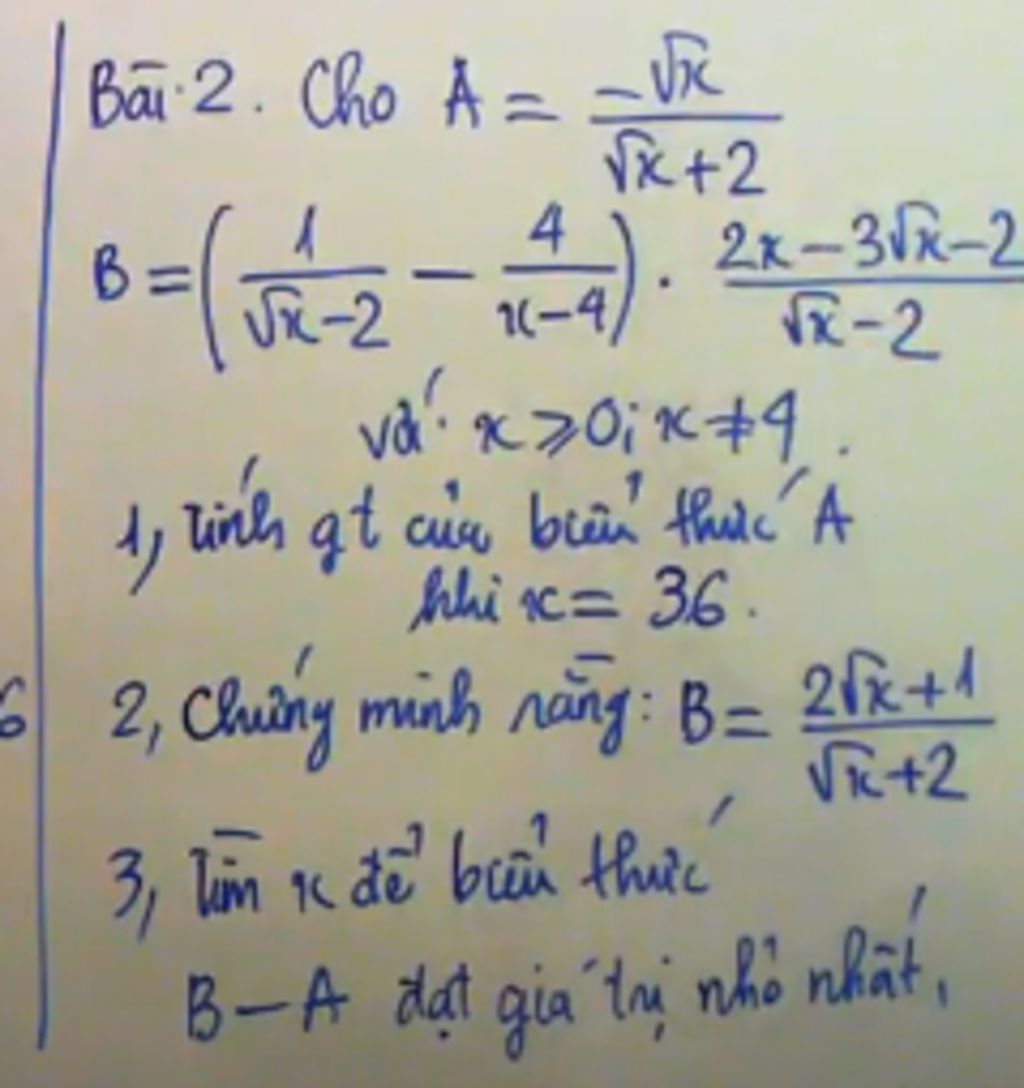 Bài 2. Cho A = \frac{-\sqrt{x}}{\sqrt{x}+2}
B = \left(\frac{1}{\sqrt{x}-2} - \frac{4}{x-4}\right) \cdot \frac{2x-3\sqrt{x}-2}{\sqrt{x}-2}
với x ⩾ 0; x ≠ 4.
1, Tính gt của biểu thức A
khi x = 36.
6
2, Chứng minh rằng: B = \frac{2\sqrt{x}+1}{\sqrt{x}+2}
3, Tìm x để biểu thức
B - A đạt giá trị nhỏ nhất.